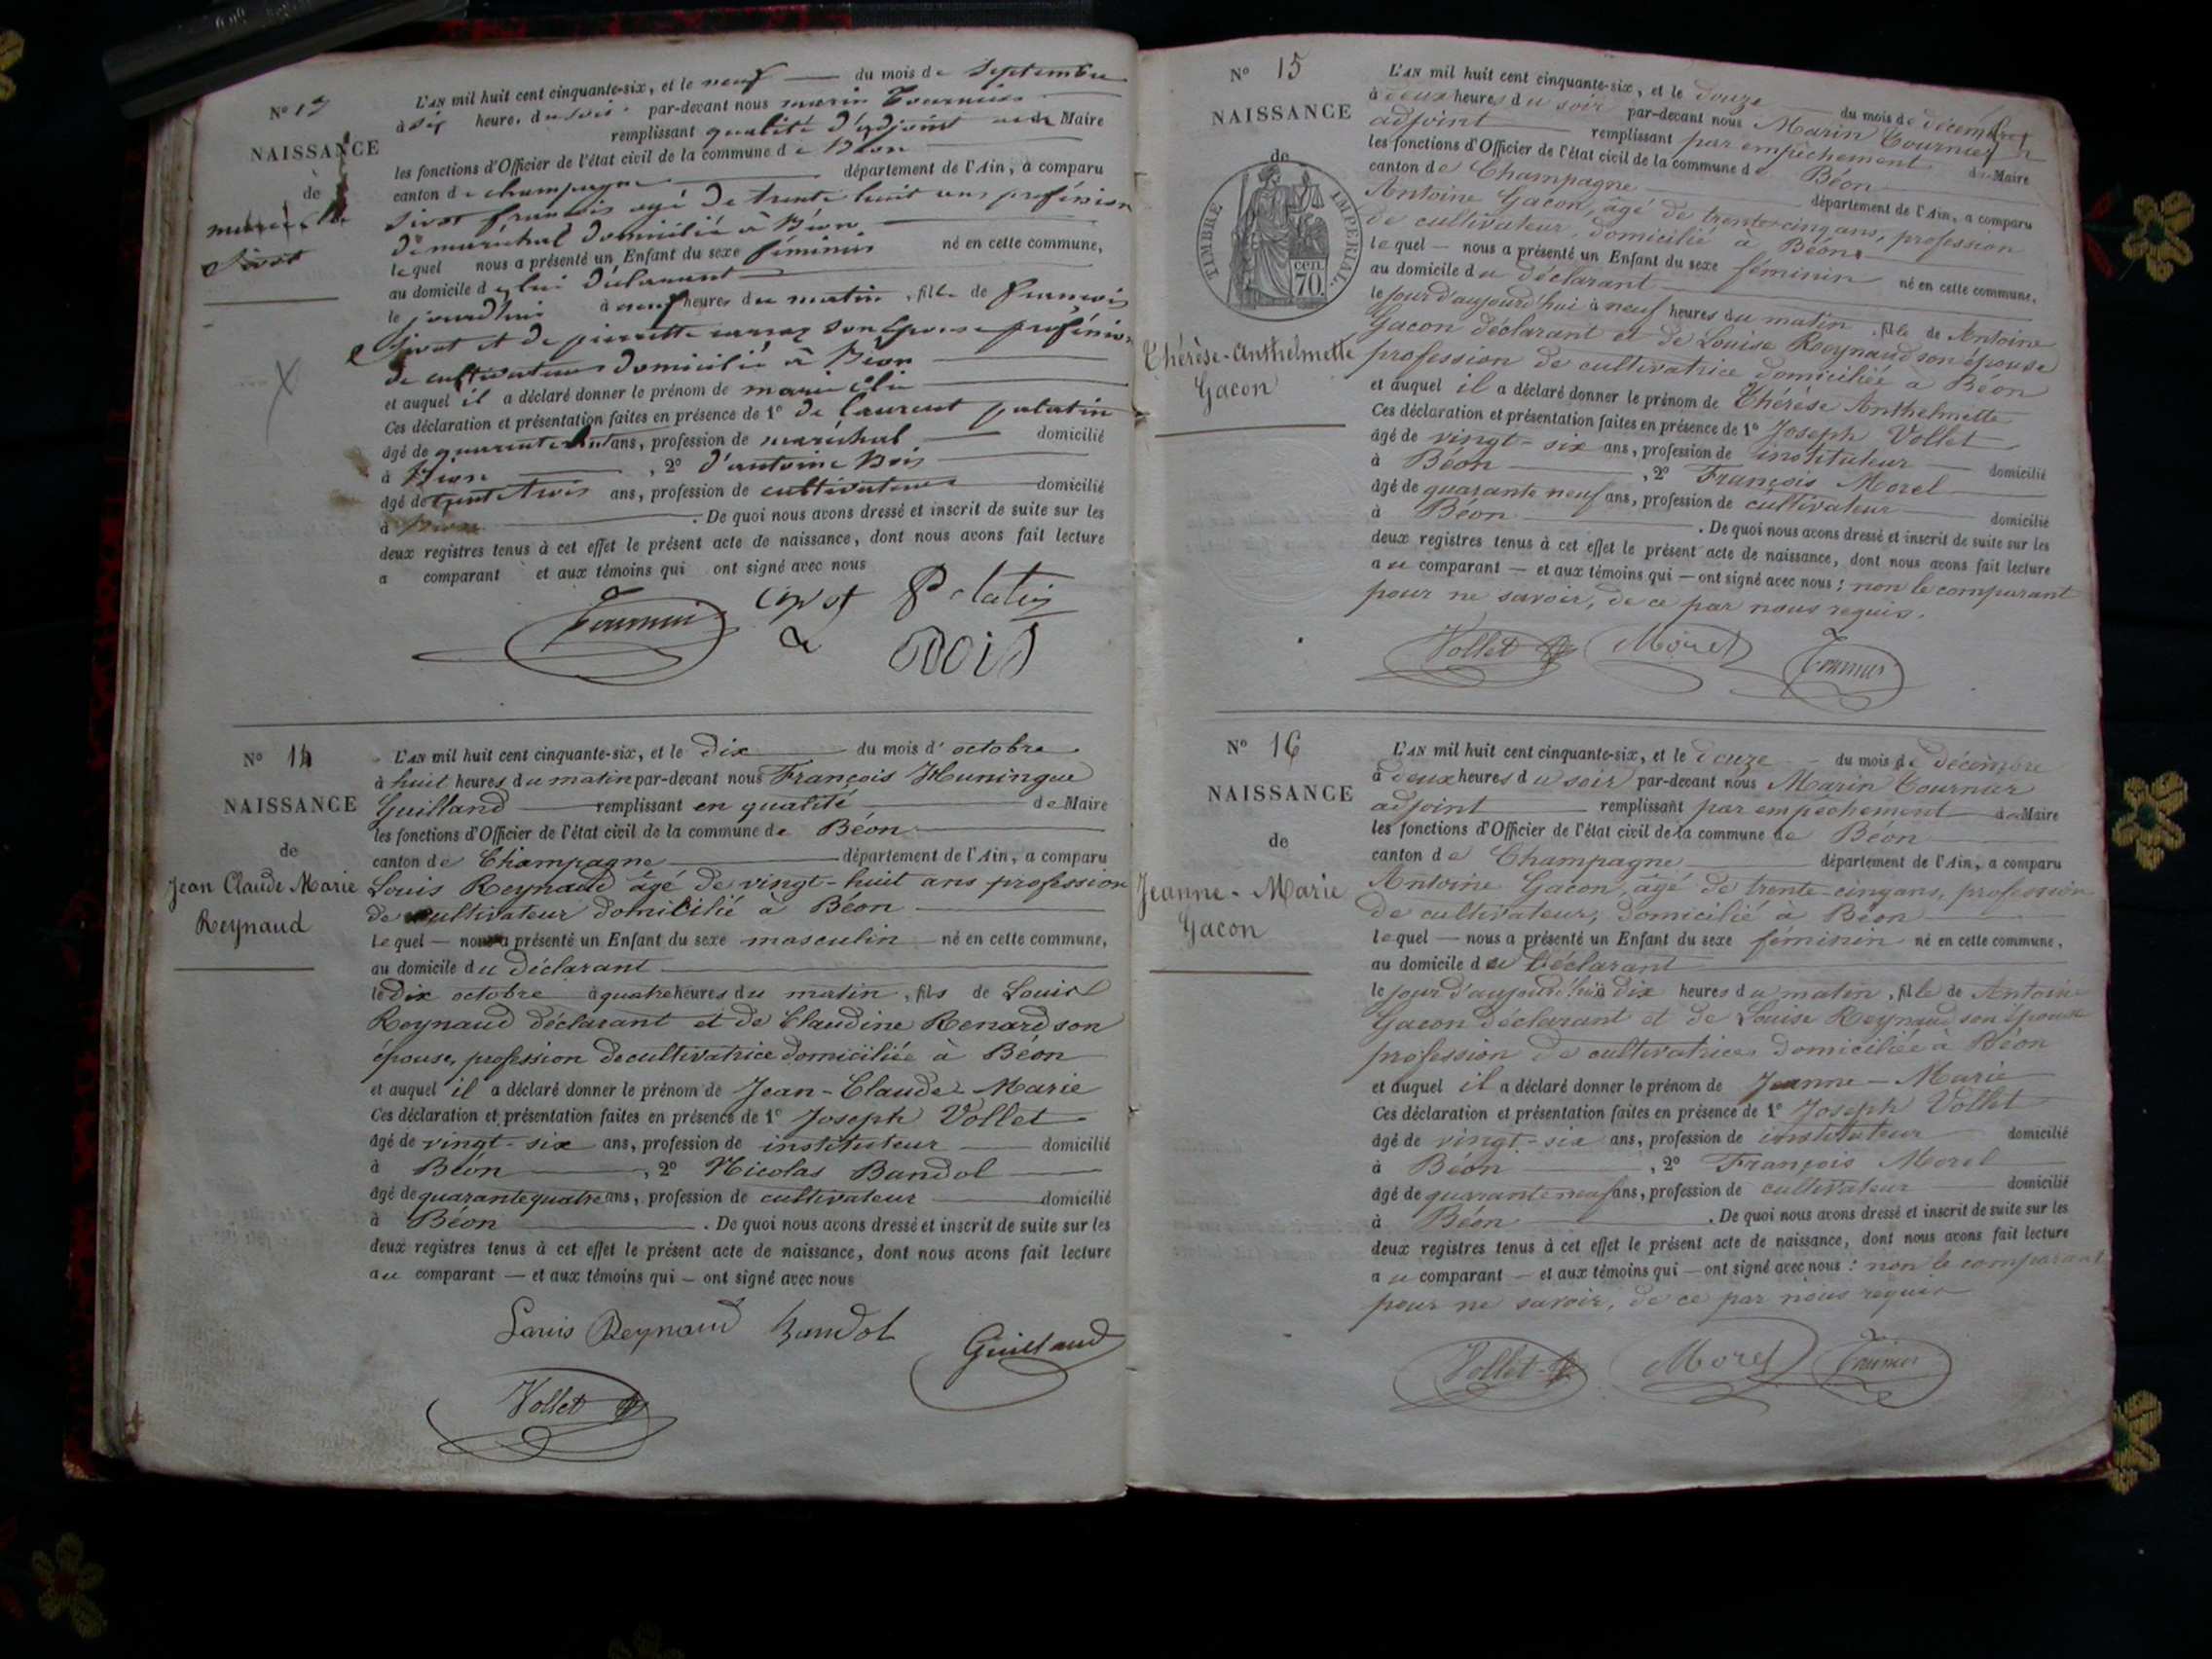 N° 13
NAISSANCE
de
L'AN mil huit cent cinquante-six, et le neuf du mois de Septembre
à six heure. du soir. par-devant nous marin Tournier
remplissant qualité d'adjoint Maire
les fonctions d'Officier de l'état civil de la commune de Béon
canton de champagne département de l'Ain, a comparu
françois agé de trente huit ans profésion
de maréchal domicilié à Béon
le quel nous a présenté un Enfant du sexe féminin né en cette commune,
au domicile d déclarant
le jourd'hui à neuf heures du matin, fille de françois
et de pierrette son épouse profésion
de cultivateur domicilié à Béon
et auquel il a déclaré donner le prénom de marie
Ces déclaration et présentation faites en présence de 1° de laurent palatin
âgé de quarante ans, profession de maréchal domicilié
à Béon, 2° d'antoine Bois
âgé de trente trois ans, profession de cultivateur domicilié
à Béon. De quoi nous avons dressé et inscrit de suite sur les
deux registres tenus à cet effet le présent acte de naissance, dont nous avons fait lecture
a comparant et aux témoins qui ont signé avec nous
Tournier
Bois
N° 14
NAISSANCE
de
Jean Claude Marie
Reynaud
L'AN mil huit cent cinquante-six, et le dix du mois d'octobre
à huit heures du matin par-devant nous François Huningue
Guilland remplissant en qualité de Maire
les fonctions d'Officier de l'état civil de la commune de Béon
canton de Champagne département de l'Ain, a comparu
Louis Reynaud âgé de vingt-huit ans profession
de cultivateur domicilié à Béon
Le quel — nous a présenté un Enfant du sexe masculin né en cette commune,
au domicile du déclarant
le dix octobre à quatre heures du matin, fils de Louis
Reynaud déclarant et de Claudine Renard son
épouse, profession de cultivatrice domiciliée à Béon
et auquel il a déclaré donner le prénom de Jean-Claude Marie
Ces déclaration et présentation faites en présence de 1° Joseph Vollet
âgé de vingt-six ans, profession de instituteur domicilié
à Béon, 2° Nicolas Bandol
âgé de quarante quatre ans, profession de cultivateur domicilié
à Béon. De quoi nous avons dressé et inscrit de suite sur les
deux registres tenus à cet effet le présent acte de naissance, dont nous avons fait lecture
au comparant — et aux témoins qui — ont signé avec nous
Louis Reynaud Bandol Guilland
Vollet
N° 15
NAISSANCE
de
TIMBRE IMPERIAL
cen.
70.
Thérèse-Anthelmette
Gacon
L'AN mil huit cent cinquante-six, et le douze du mois de décembre
à deux heures du soir par-devant nous Marin Tournier
adjoint remplissant par empêchement du Maire
les fonctions d'Officier de l'état civil de la commune de Béon
canton de Champagne département de l'Ain, a comparu
Antoine Gacon, âgé de trente-cinq ans, profession
de cultivateur, domicilié à Béon
le quel — nous a présenté un Enfant du sexe féminin né en cette commune,
au domicile du déclarant
le jour d'aujourd'hui à neuf heures du matin, fille de Antoine
Gacon déclarant et de Louise Reynaud son épouse
profession de cultivatrice domiciliée à Béon
et auquel il a déclaré donner le prénom de Thérèse Anthelmette
Ces déclaration et présentation faites en présence de 1° Joseph Vollet
âgé de vingt-six ans, profession de instituteur domicilié
à Béon, 2° François Morel
âgé de quarante neuf ans, profession de cultivateur domicilié
à Béon. De quoi nous avons dressé et inscrit de suite sur les
deux registres tenus à cet effet le présent acte de naissance, dont nous avons fait lecture
au comparant — et aux témoins qui — ont signé avec nous : non le comparant
pour ne savoir, de ce par nous requis.
Vollet Morel Tournier
N° 16
NAISSANCE
de
Jeanne-Marie
Gacon
L'AN mil huit cent cinquante-six, et le douze du mois de décembre
à deux heures du soir par-devant nous Marin Tournier
adjoint remplissant par empêchement du Maire
les fonctions d'Officier de l'état civil de la commune de Béon
canton de Champagne département de l'Ain, a comparu
Antoine Gacon, âgé de trente-cinq ans, profession
de cultivateur, domicilié à Béon
le quel — nous a présenté un Enfant du sexe féminin né en cette commune,
au domicile du déclarant
le jour d'aujourd'hui à dix heures du matin, fille de Antoine
Gacon déclarant et de Louise Reynaud son épouse
profession de cultivatrice domiciliée à Béon
et auquel il a déclaré donner le prénom de Jeanne-Marie
Ces déclaration et présentation faites en présence de 1° Joseph Vollet
âgé de vingt-six ans, profession de instituteur domicilié
à Béon, 2° François Morel
âgé de quarante neuf ans, profession de cultivateur domicilié
à Béon. De quoi nous avons dressé et inscrit de suite sur les
deux registres tenus à cet effet le présent acte de naissance, dont nous avons fait lecture
au comparant — et aux témoins qui — ont signé avec nous : non le comparant
pour ne savoir, de ce par nous requis
Vollet Morel Tournier